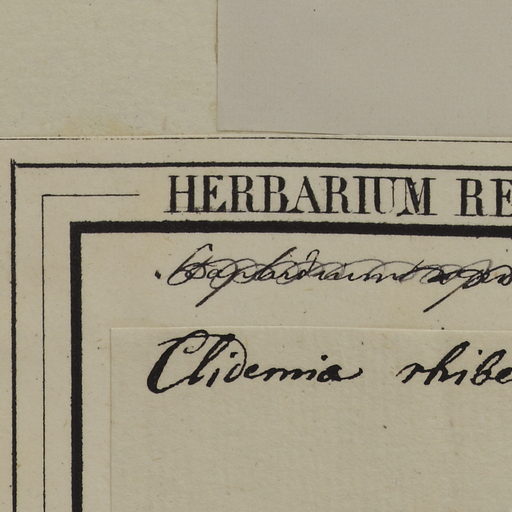 HERBARIUM RE
Clidemia rhibe